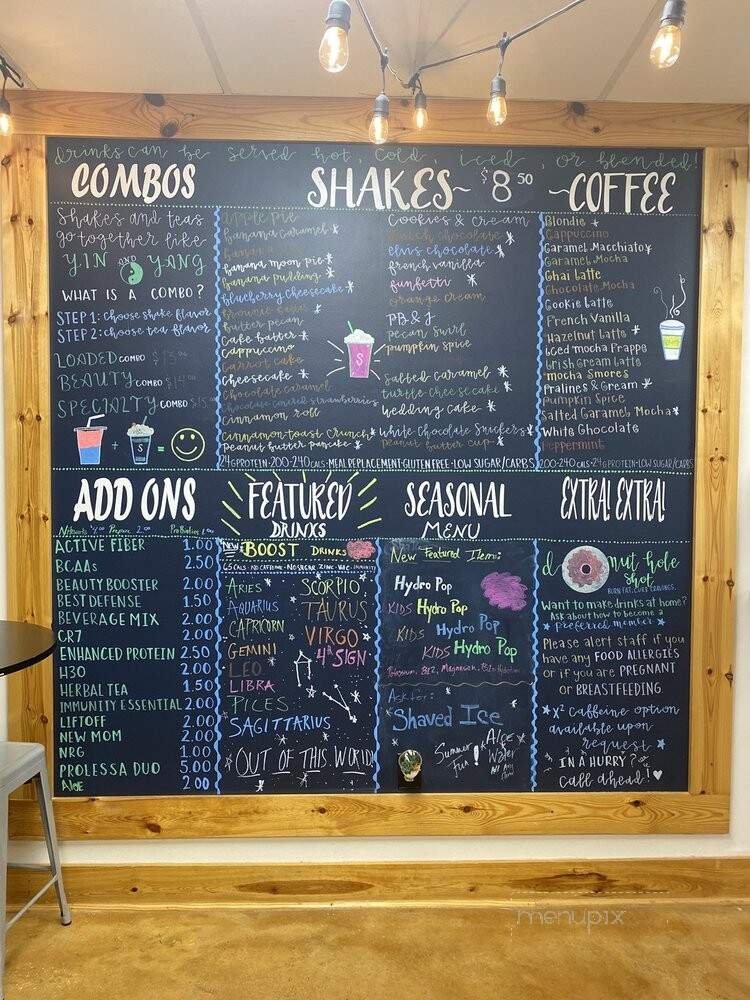 drinks can be served hot, cold, iced, or blended!
COMBOS
Shakes and teas
go together like
YIN AND YANG
WHAT IS A COMBO?
STEP 1: choose shake flavor
STEP 2: choose tea flavor
LOADED COMBO
BEAUTY COMBO $14.00
SPECIALTY COMBO
SHAKES~ $8.50
apple pie
banana caramel*
banana
banana moon pie*
banana pudding*
blueberry cheesecake*
butter pecan
cake batter*
cappuccino
carrot cake
cheesecake*
chocolate caramel
chocolate covered strawberries
cinnamon roll
cinnamon toast crunch*
peanut butter pancake*
Cookies & cream
dutch chocolate
elvis chocolate*
french vanilla
funfetti*
orange cream
PB & J
pecan swirl
pumpkin spice
S
salted caramel*
turtle cheesecake*
wedding cake*
white chocolate snickers*
peanut butter cup*
24G PROTEIN-200-240 CALS-MEAL REPLACEMENT-GLUTEN FREE-LOW SUGAR/CARBS
~COFFEE
Blondie*
Cappuccino
Caramel Macchiato*
Caramel Mocha
Chai Latte
Chocolate Mocha
Cookie Latte
French Vanilla
Hazelnut Latte*
Iced mocha Frappe
Irish Cream Latte
mocha Smores
Pralines & Cream*
Pumpkin Spice
Salted Caramel Mocha*
White Chocolate
Peppermint
200-240 CALS-24G PROTEIN-LOW SUGAR/CARBS
ADD ONS
Prepare 2.00 ProBiotics
ACTIVE FIBER 1.00
BCAAs 2.50
BEAUTY BOOSTER 2.00
BEST DEFENSE 1.50
BEVERAGE MIX 2.00
CR7 2.00
ENHANCED PROTEIN 2.50
H3O 2.00
HERBAL TEA 1.50
IMMUNITY ESSENTIAL 2.00
LIFTOFF 2.00
NEW MOM 2.00
NRG 1.00
PROLESSA DUO 5.00
Aloe 2.00
FEATURED
DRINKS
NEW BOOST DRINKS
ARIES
AQUARIUS
CAPRICORN
GEMINI
LEO
LIBRA
PICES
SAGITTARIUS
SCORPIO
TAURUS
VIRGO
4R SIGN
"OUT OF THIS WORLD"
SEASONAL
MENU
New Featured Item:
Hydro Pop
KIDS Hydro Pop
KIDS Hydro Pop
KIDS Hydro Pop
Ask for:
Shaved Ice
Summer
Fun!
*Aloe
Water
EXTRA! EXTRA!
donut hole
shot
BURN FAT, CURB CRAVINGS
Want to make drinks at home?
Ask about how to become a
*preferred member*
Please alert staff if you
have any FOOD ALLERGIES
or if you are PREGNANT
or BREASTFEEDING
*X² Caffeine option
available upon
request*
IN A HURRY?
Call ahead!
menupix